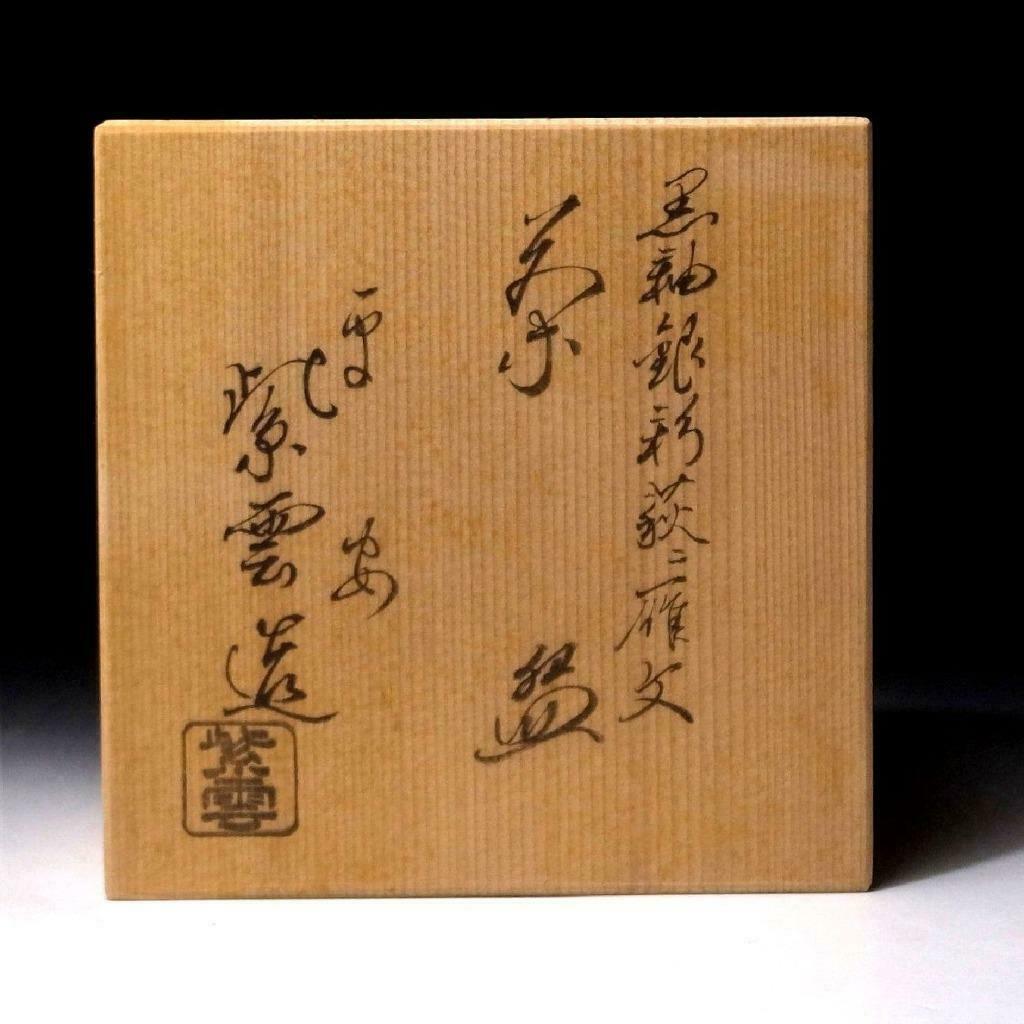 黒釉銀彩萩ニ雁文
茶盌
平安
紫雲造
紫雲